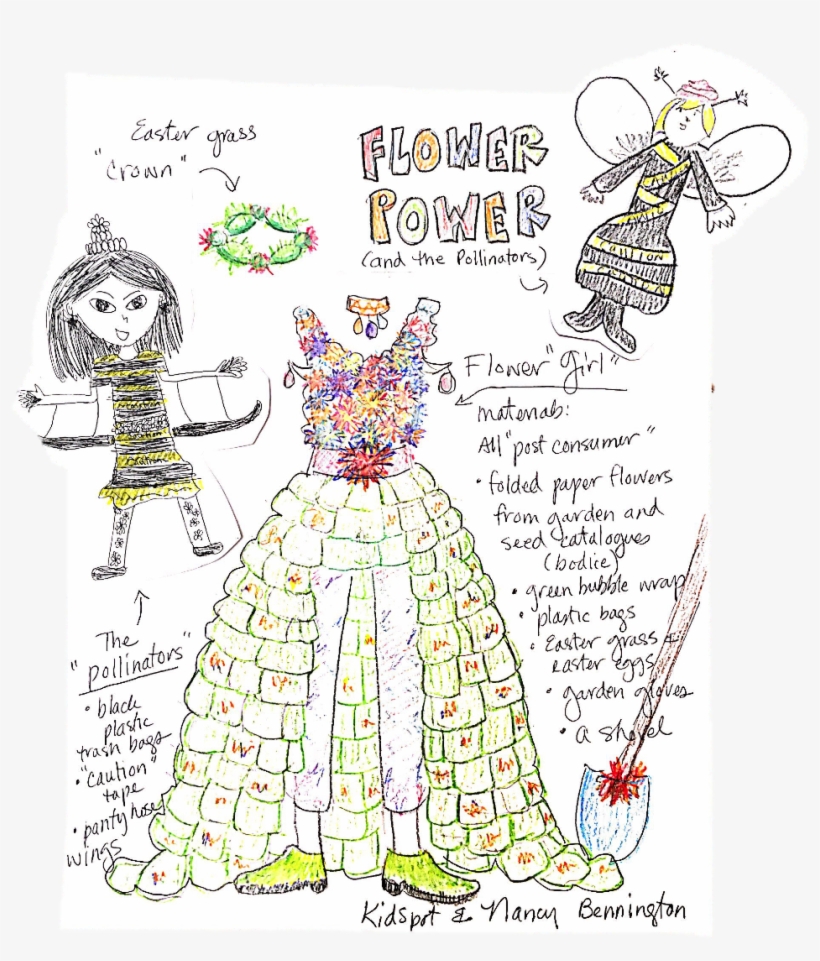 Easter grass
"Crown"
FLOWER
POWER
(and the Pollinators)
caution
Flower "Girl"
materials:
All "post consumer"
• folded paper flowers
from garden and
seed catalogues
(bodice)
• green bubble wrap
• plastic bags
• Easter grass &
easter eggs
• garden gloves
• a shovel
The
"pollinators"
• black
plastic
trash bags
• "caution"
tape
• panty hose
wings
Kidspot & Nancy Bennington